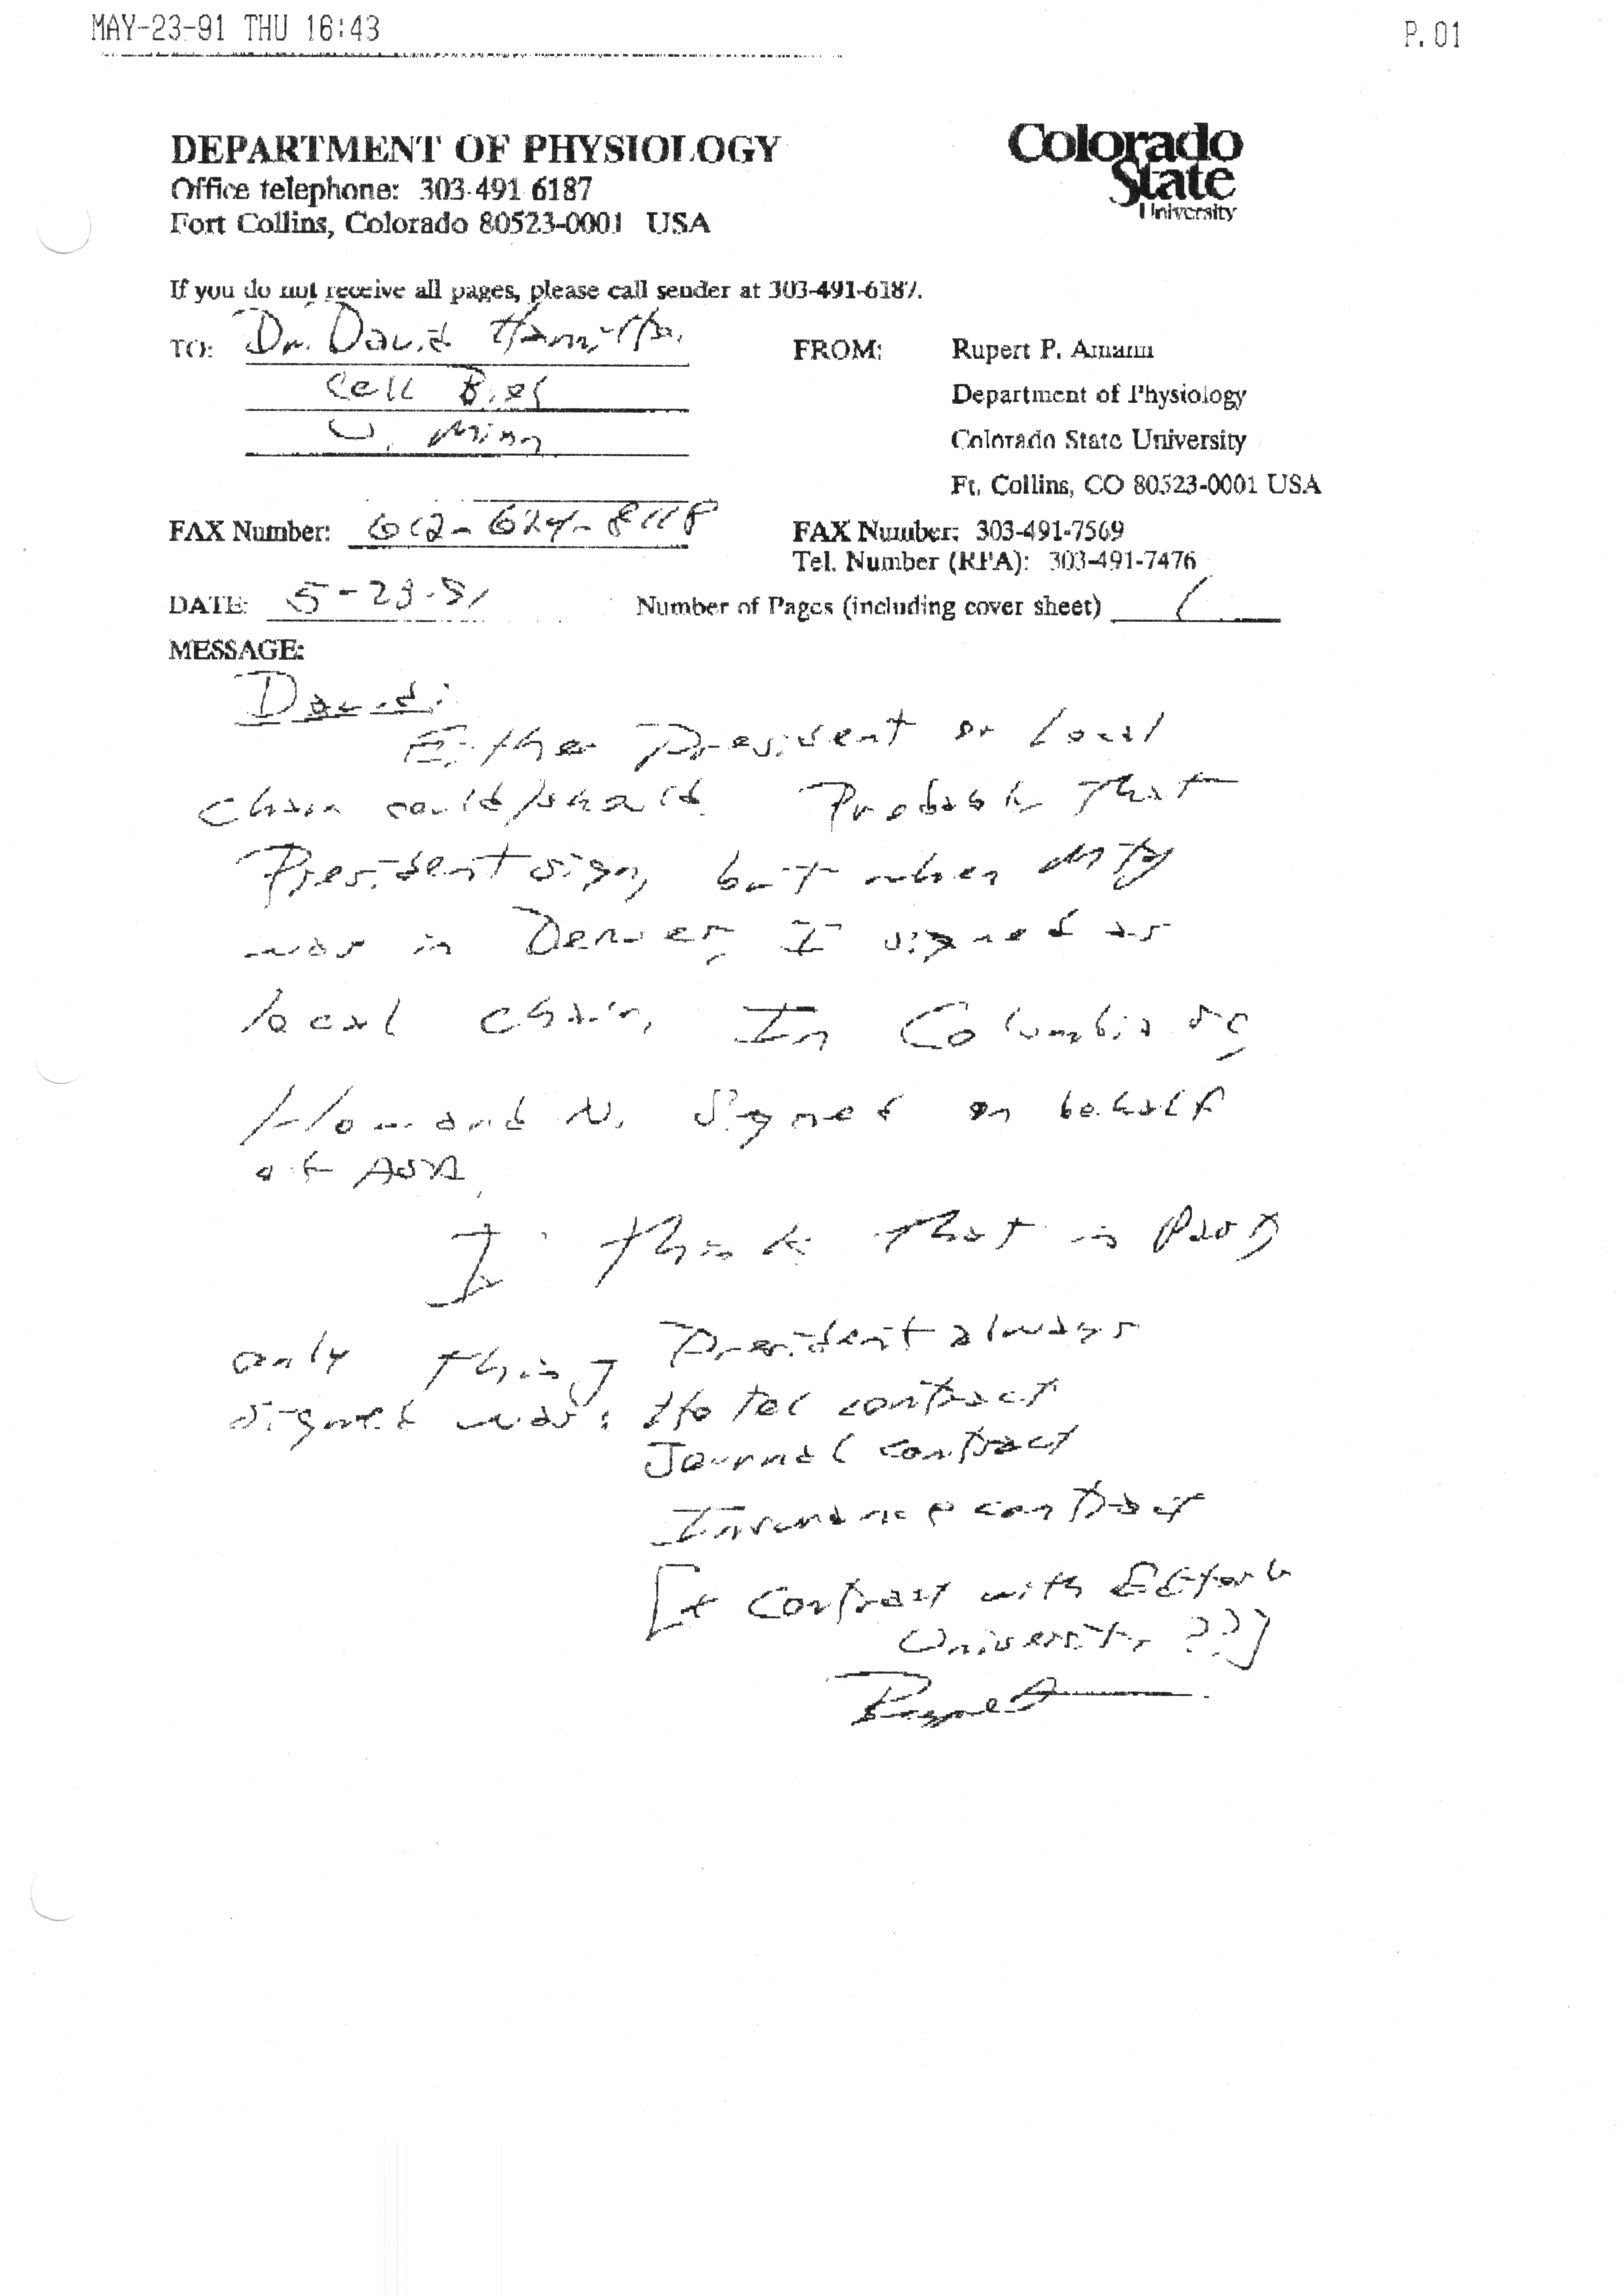 MAY-23-91 THU 16:43 P.01
DEPARTMENT OF PHYSIOLOGY
Office telephone: 303-491 6187
Fort Collins, Colorado 80523-0001 USA
Colorado
State
University
If you do not receive all pages, please call sender at 303-491-6187.
TO: Dr. David Hamilton
Cell Biol
U. Minn
FROM: Rupert P. Amann
Department of Physiology
Colorado State University
Ft. Collins, CO 80523-0001 USA
FAX Number: 612-624-8118
FAX Number: 303-491-7569
Tel. Number (RPA): 303-491-7476
DATE: 5-23-91 Number of Pages (including cover sheet) 1
MESSAGE:
David:
Either President or local
chair could/should. Probably that
President sign, but when mtg
was in Denver, I signed as
local chair. In Columbia SC,
Howard N. signed on behalf
of ASA.
I think that is
only thing President always
signed was: Hotel contract
Journal contract
Insurance contract
[+ contract with
University ??]
Rupert